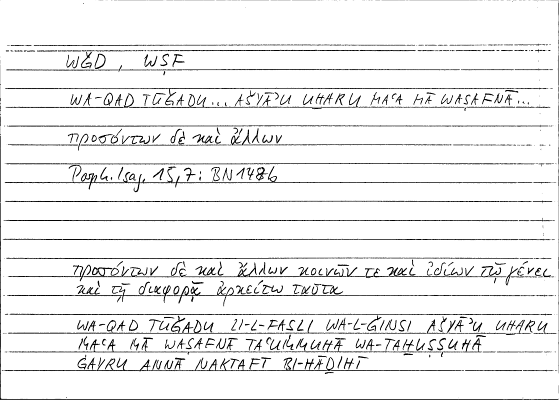 WǦD, WṢF
WA-QAD TŪǦADU... AŠYĀʾU UḪARU MAʿA MĀ WAṢAFNĀ...
προσόντων δὲ καὶ ἄλλων
Porph. Isag. 15,7: BN148b
προσόντων δὲ καὶ ἄλλων κοινῶν τε καὶ ἰδίων τῷ γένει
καὶ τῇ διαφορᾷ ἀρκείτω ταῦτα
WA-QAD TŪǦADU LI-L-FAṢLI WA-L-ǦINSI AŠYĀʾU UḪARU
MAʿA MĀ WAṢAFNĀ TAʿUMMUHĀ WA-TAḪUṢṢUHĀ
ĠAYRU ANNĀ NAKTAFĪ BI-HĀḎIHĪ